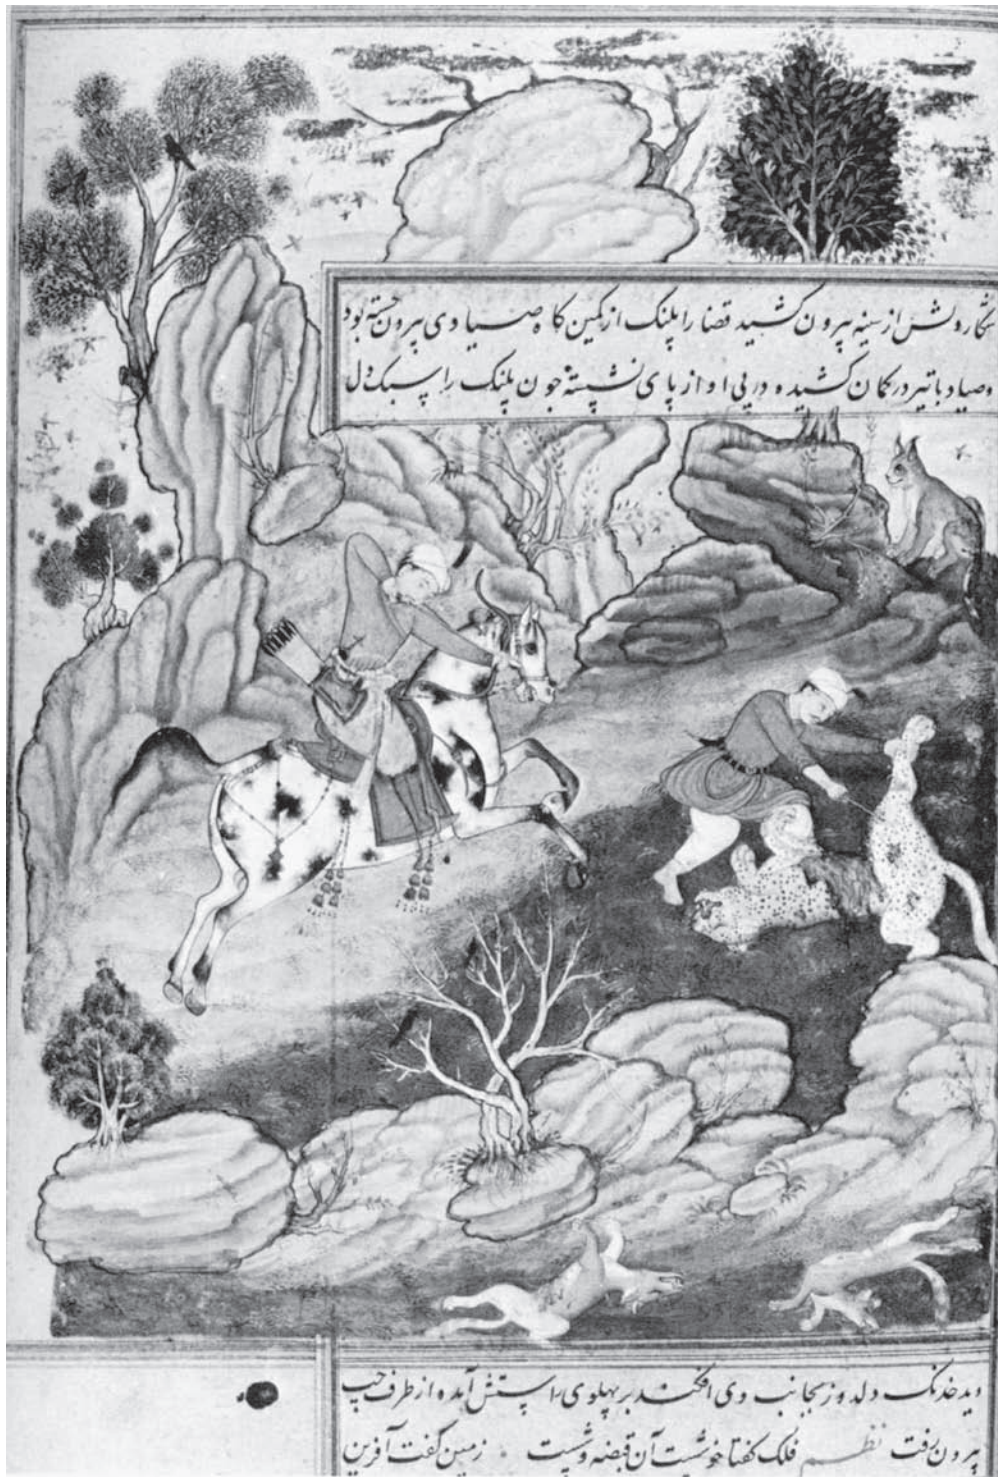 نگارونش از سینه بیرون کشید قضا را پلنک از کمین کاه صیادی بیرون جسته بود
وصیاد با تیر در کمان کشیده در پی او از پای نشسته جون پلنک را سبک دل
دید خدنک دلدوز بجانب وی افکند بر پهلوی راستش آمده از طرف جب
بیرون رفت نظم فلک کفتا خوشست آن قبضه و شست زمین کفت آفرین